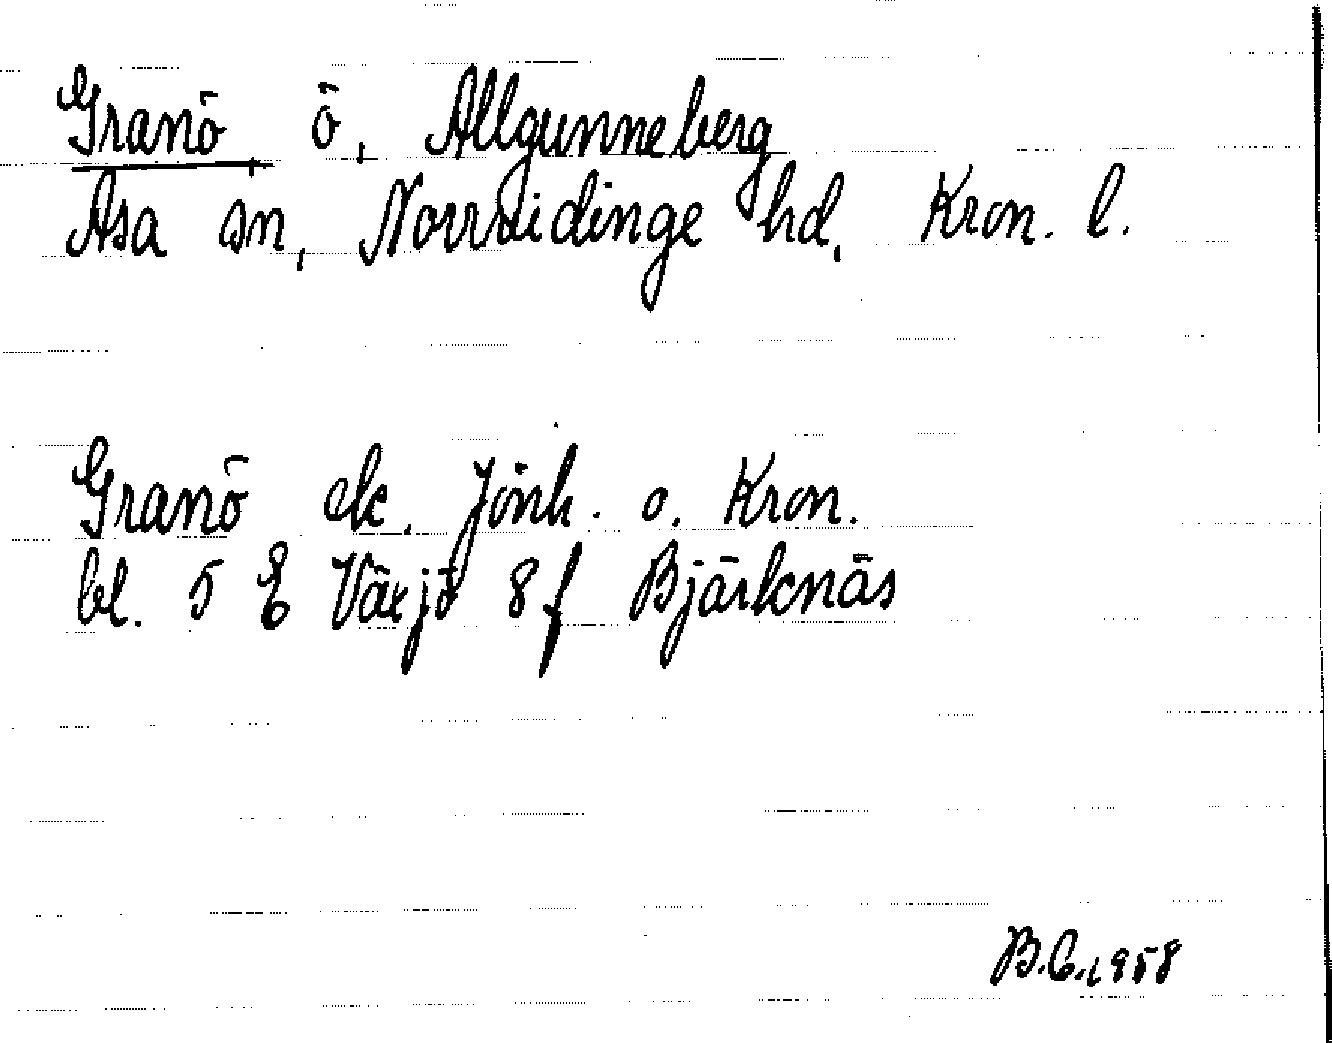 Granö, ö, Allgunneberg
Asa sn, Norrvidinge hd, Kron. l.
Granö ek. Jönk. o. Kron.
bl. 5 E Växjö 8f Bjärknäs
B.C. 1958